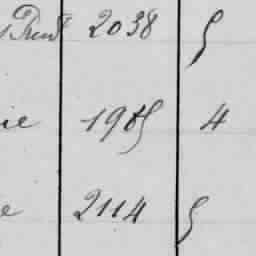 2038 5
ie 1985 4
e 2114 5